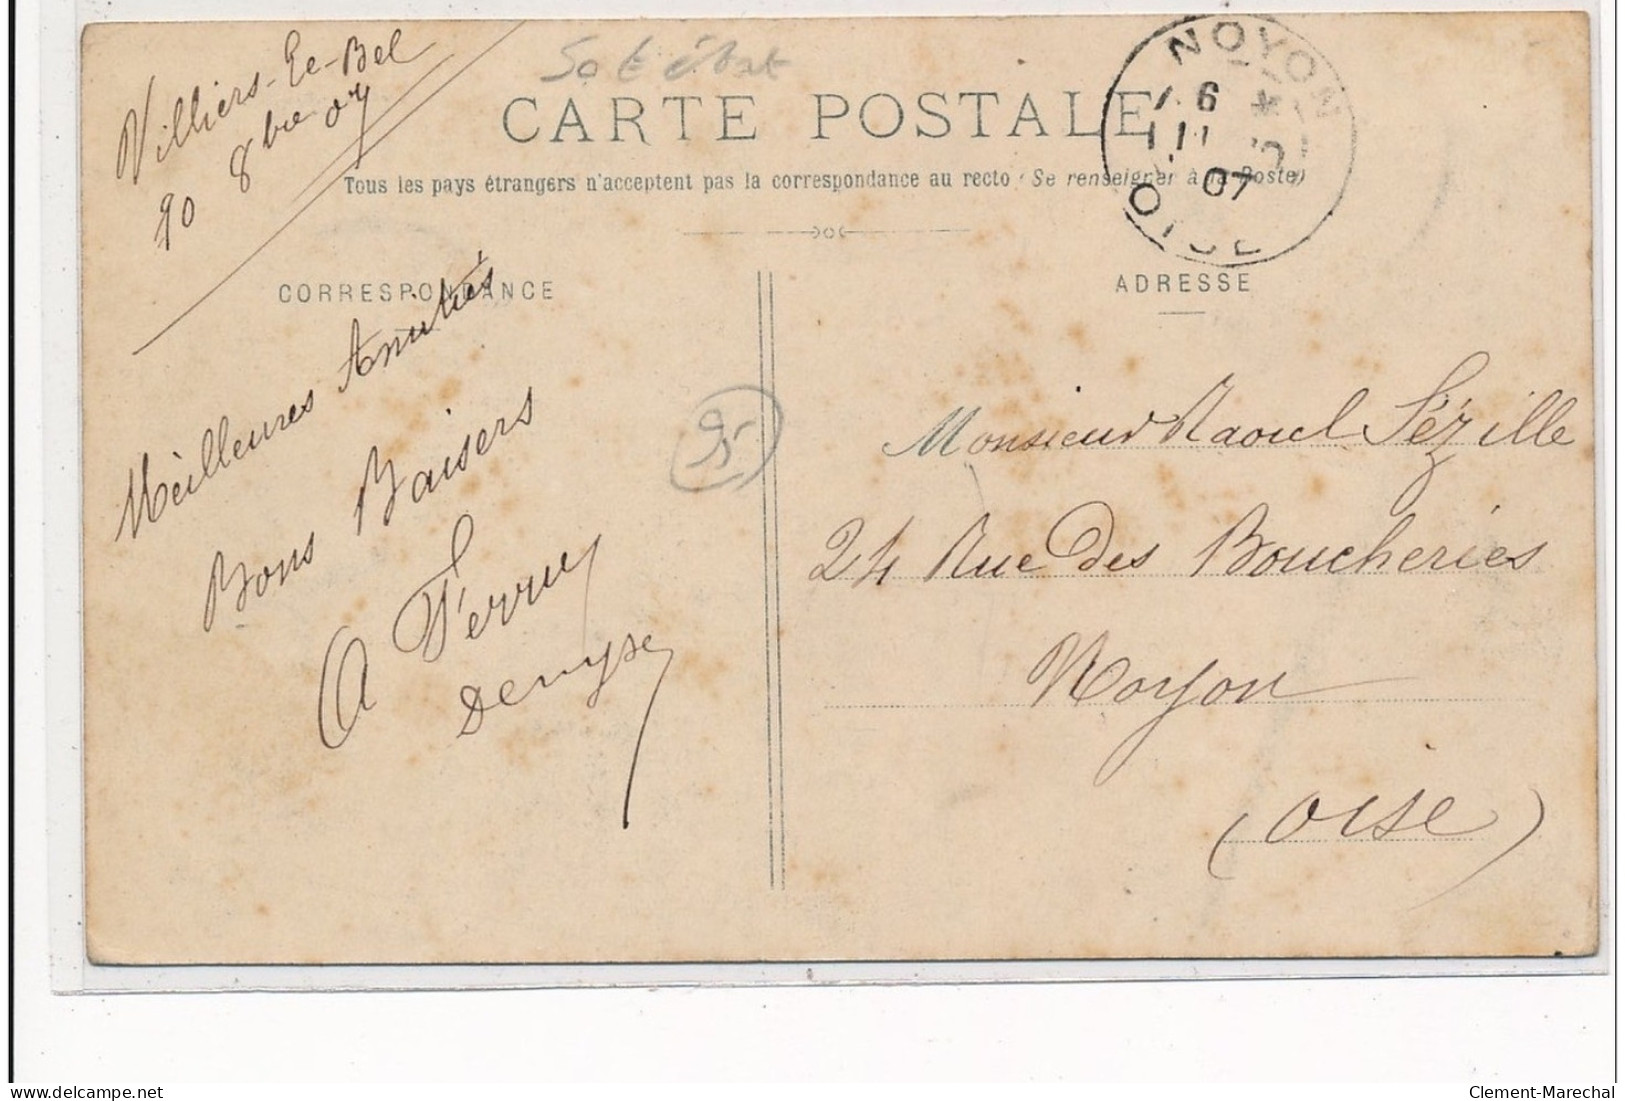 Villiers-le-Bel
20 8bre 07
CARTE POSTALE
Tous les pays étrangers n'acceptent pas la correspondance au recto (Se renseigner à la Poste)
NOYON
6
11
07
OISE
CORRESPONDANCE
ADRESSE
Meilleures Amitiés
Bons Baisers
Denyse
95
Monsieur Raoul Sézille
24 Rue des Boucheries
Noyon
(Oise)
Clement-Marechal